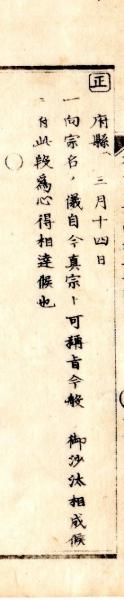 正
府縣 三月十四日
一向宗名ノ儀自今真宗ト可稱旨今般 御沙汰相成候
ニ付此段爲心得相達候也
○